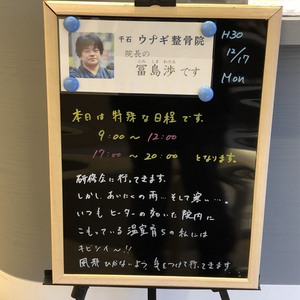 千石 ウナギ整骨院
院長の
とみ しま わたる
冨島渉です
H30
12/17
Mon
本日は特殊な日程です。
9:00 〜 12:00
17:00 〜 20:00 となります。
研修会に行ってきます。
しかし、あいにくの雨…そして寒い…。
いつもヒーターの効いた院内に
こもっている温室育ちの私には
キビシイ〜!!
風邪ひかないよう気をつけて行ってきます。